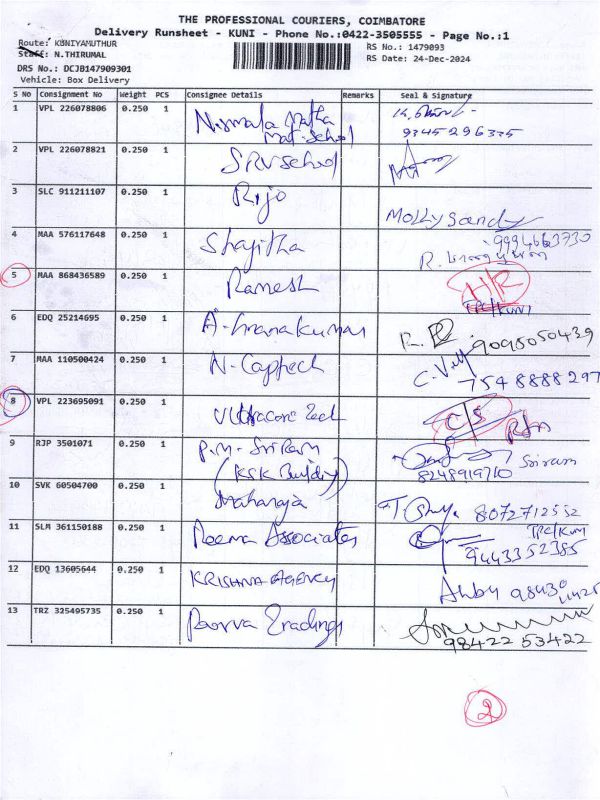 THE PROFESSIONAL COURIERS, COIMBATORE
Delivery Runsheet - KUNI - Phone No.:0422-3505555 - Page No.:1
Route: KUNIYAMUTHUR RS No.: 1479093
Staff: N.THIRUMAL RS Date: 24-Dec-2024
DRS No.: DCJB147909301
Vehicle: Box Delivery
S No Consignment No Weight PCS Consignee Details Remarks Seal & Signature
1 VPL 226078806 0.250 1 Nirmala Matha
Mat. School 9345296335
2 VPL 226078821 0.250 1 SRV School
3 SLC 911211107 0.250 1 Rijo Molly Sandy
4 MAA 576117648 0.250 1 Shajitha 9994663730
5 MAA 868436589 0.250 1 Ramesh H/R
TPC/KUNI
6 EDQ 25214695 0.250 1 A. Gnanakumar 9095050439
7 MAA 110500424 0.250 1 N-Captech 7548888297
8 VPL 223695091 0.250 1 Ultracore Tech C/S
9 RJP 3501071 0.250 1 P.M. Sriram Sriram
(KSK Building) 8248919710
10 SVK 60504700 0.250 1 Maharaja 8072712552
11 SLM 361150188 0.250 1 Poorna Associates TPC/KUNI
9443352385
12 EDQ 13605644 0.250 1 KRISHNA AGENCY
13 TRZ 325495735 0.250 1 Poorva Tradings 98422 53422
2